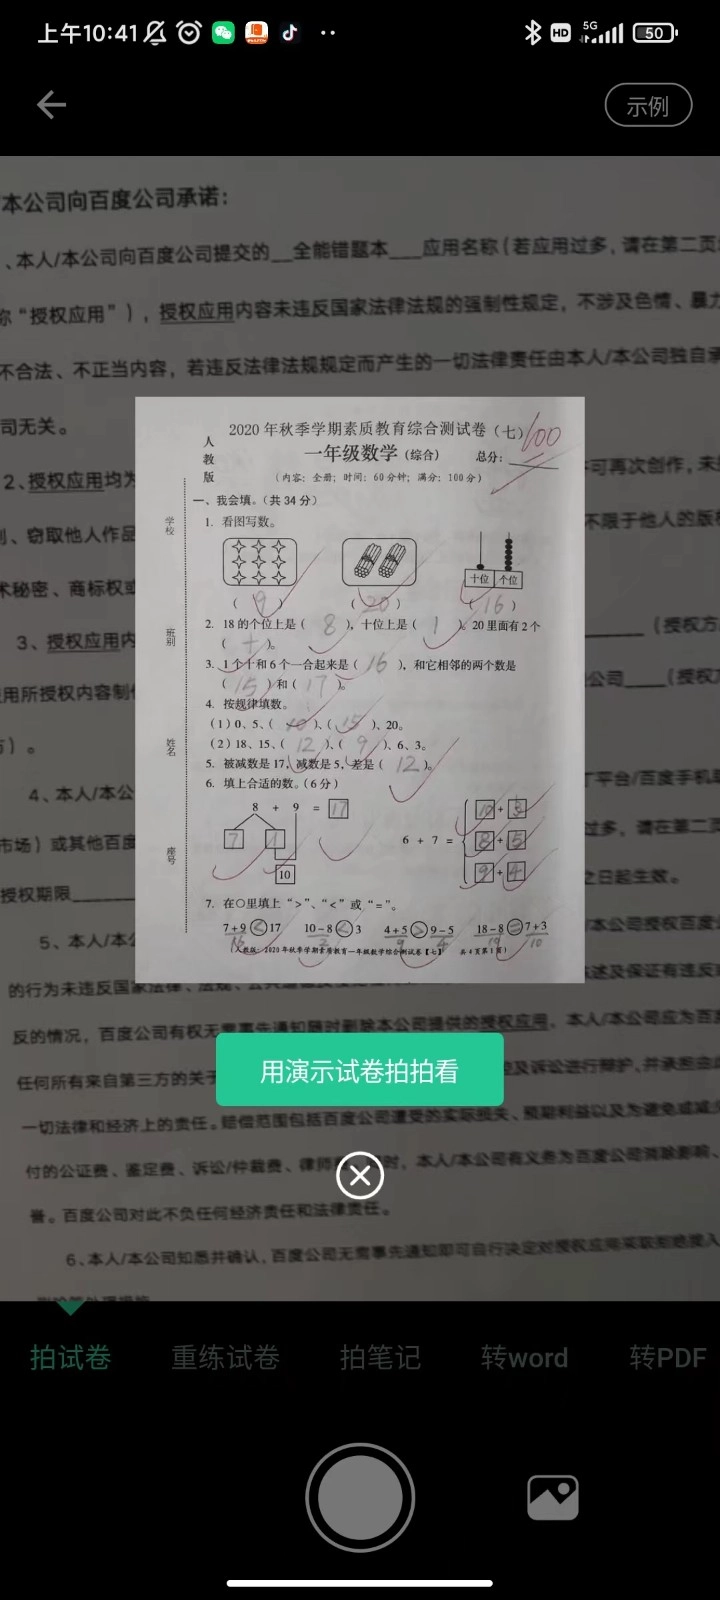 上午10:41
HD
5G
50
示例
本公司向百度公司承诺：
、本人/本公司向百度公司提交的__全能错题本___应用名称（若应用过多，请在第二页
称“授权应用”），授权应用内容未违反国家法律法规的强制性规定，不涉及色情、暴力
不合法、不正当内容，若违反法律法规规定而产生的一切法律责任由本人/本公司独自承
司无关。
2、授权应用均为
可再次创作，未
、窃取他人作品
不限于他人的版权
术秘密、商标权或
3、授权应用内
（授权方
用所授权内容制作
公司____（授权
）。
4、本人/本公
平台/百度手机
市场）或其他百度
过多，请在第二页
授权期限
之日起生效。
5、本人/本公
本公司授权百度公
的行为未违反国家法律、法规
述及保证有违反
反的情况，百度公司有权无需事先通知随时删除本公司提供的授权应用，本人/本公司应为百度
任何所有来自第三方的关于
及诉讼进行辩护，并承担由此
一切法律和经济上的责任。赔偿范围包括百度公司遭受的实际损失、预期利益以及为避免或减少
付的公证费、鉴定费、诉讼/仲裁费、律师
时，本人/本公司有义务为百度公司消除影响、
誉。百度公司对此不负任何经济责任和法律责任。
6、本人/本公司知悉并确认，百度公司无需事先通知即可自行决定对授权应用采取拒绝接入
人教版
2020年秋季学期素质教育综合测试卷（七）
100
一年级数学（综合）
总分：
（内容：全册；时间：60分钟；满分：100分）
学校
班别
姓名
座号
一、我会填。（共34分）
1. 看图写数。
十位 个位
（ 9 ） （ 20 ） （ 16 ）
2. 18的个位上是（ 8 ），十位上是（ 1 ）。20里面有2个
（ 十 ）。
3. 1个十和6个一合起来是（ 16 ），和它相邻的两个数是
（ 15 ）和（ 17 ）。
4. 按规律填数。
（1）0、5、（ 10 ）、（ 15 ）、20。
（2）18、15、（ 12 ）、（ 9 ）、6、3。
5. 被减数是17，减数是5，差是（ 12 ）。
6. 填上合适的数。（6分）
8 + 9 = 17
7 1
10
6 + 7 =
10 + 3
8 + 5
9 + 4
7. 在○里填上“>”、“<”或“=”。
7+9 < 17 10-8 < 3 4+5 > 9-5 18-8 = 7+3
16 2 9 4 10 10
（人教版：2020年秋季学期素质教育一年级数学综合测试卷【七】 共4页第1页）
用演示试卷拍拍看
拍试卷 重练试卷 拍笔记 转word 转PDF